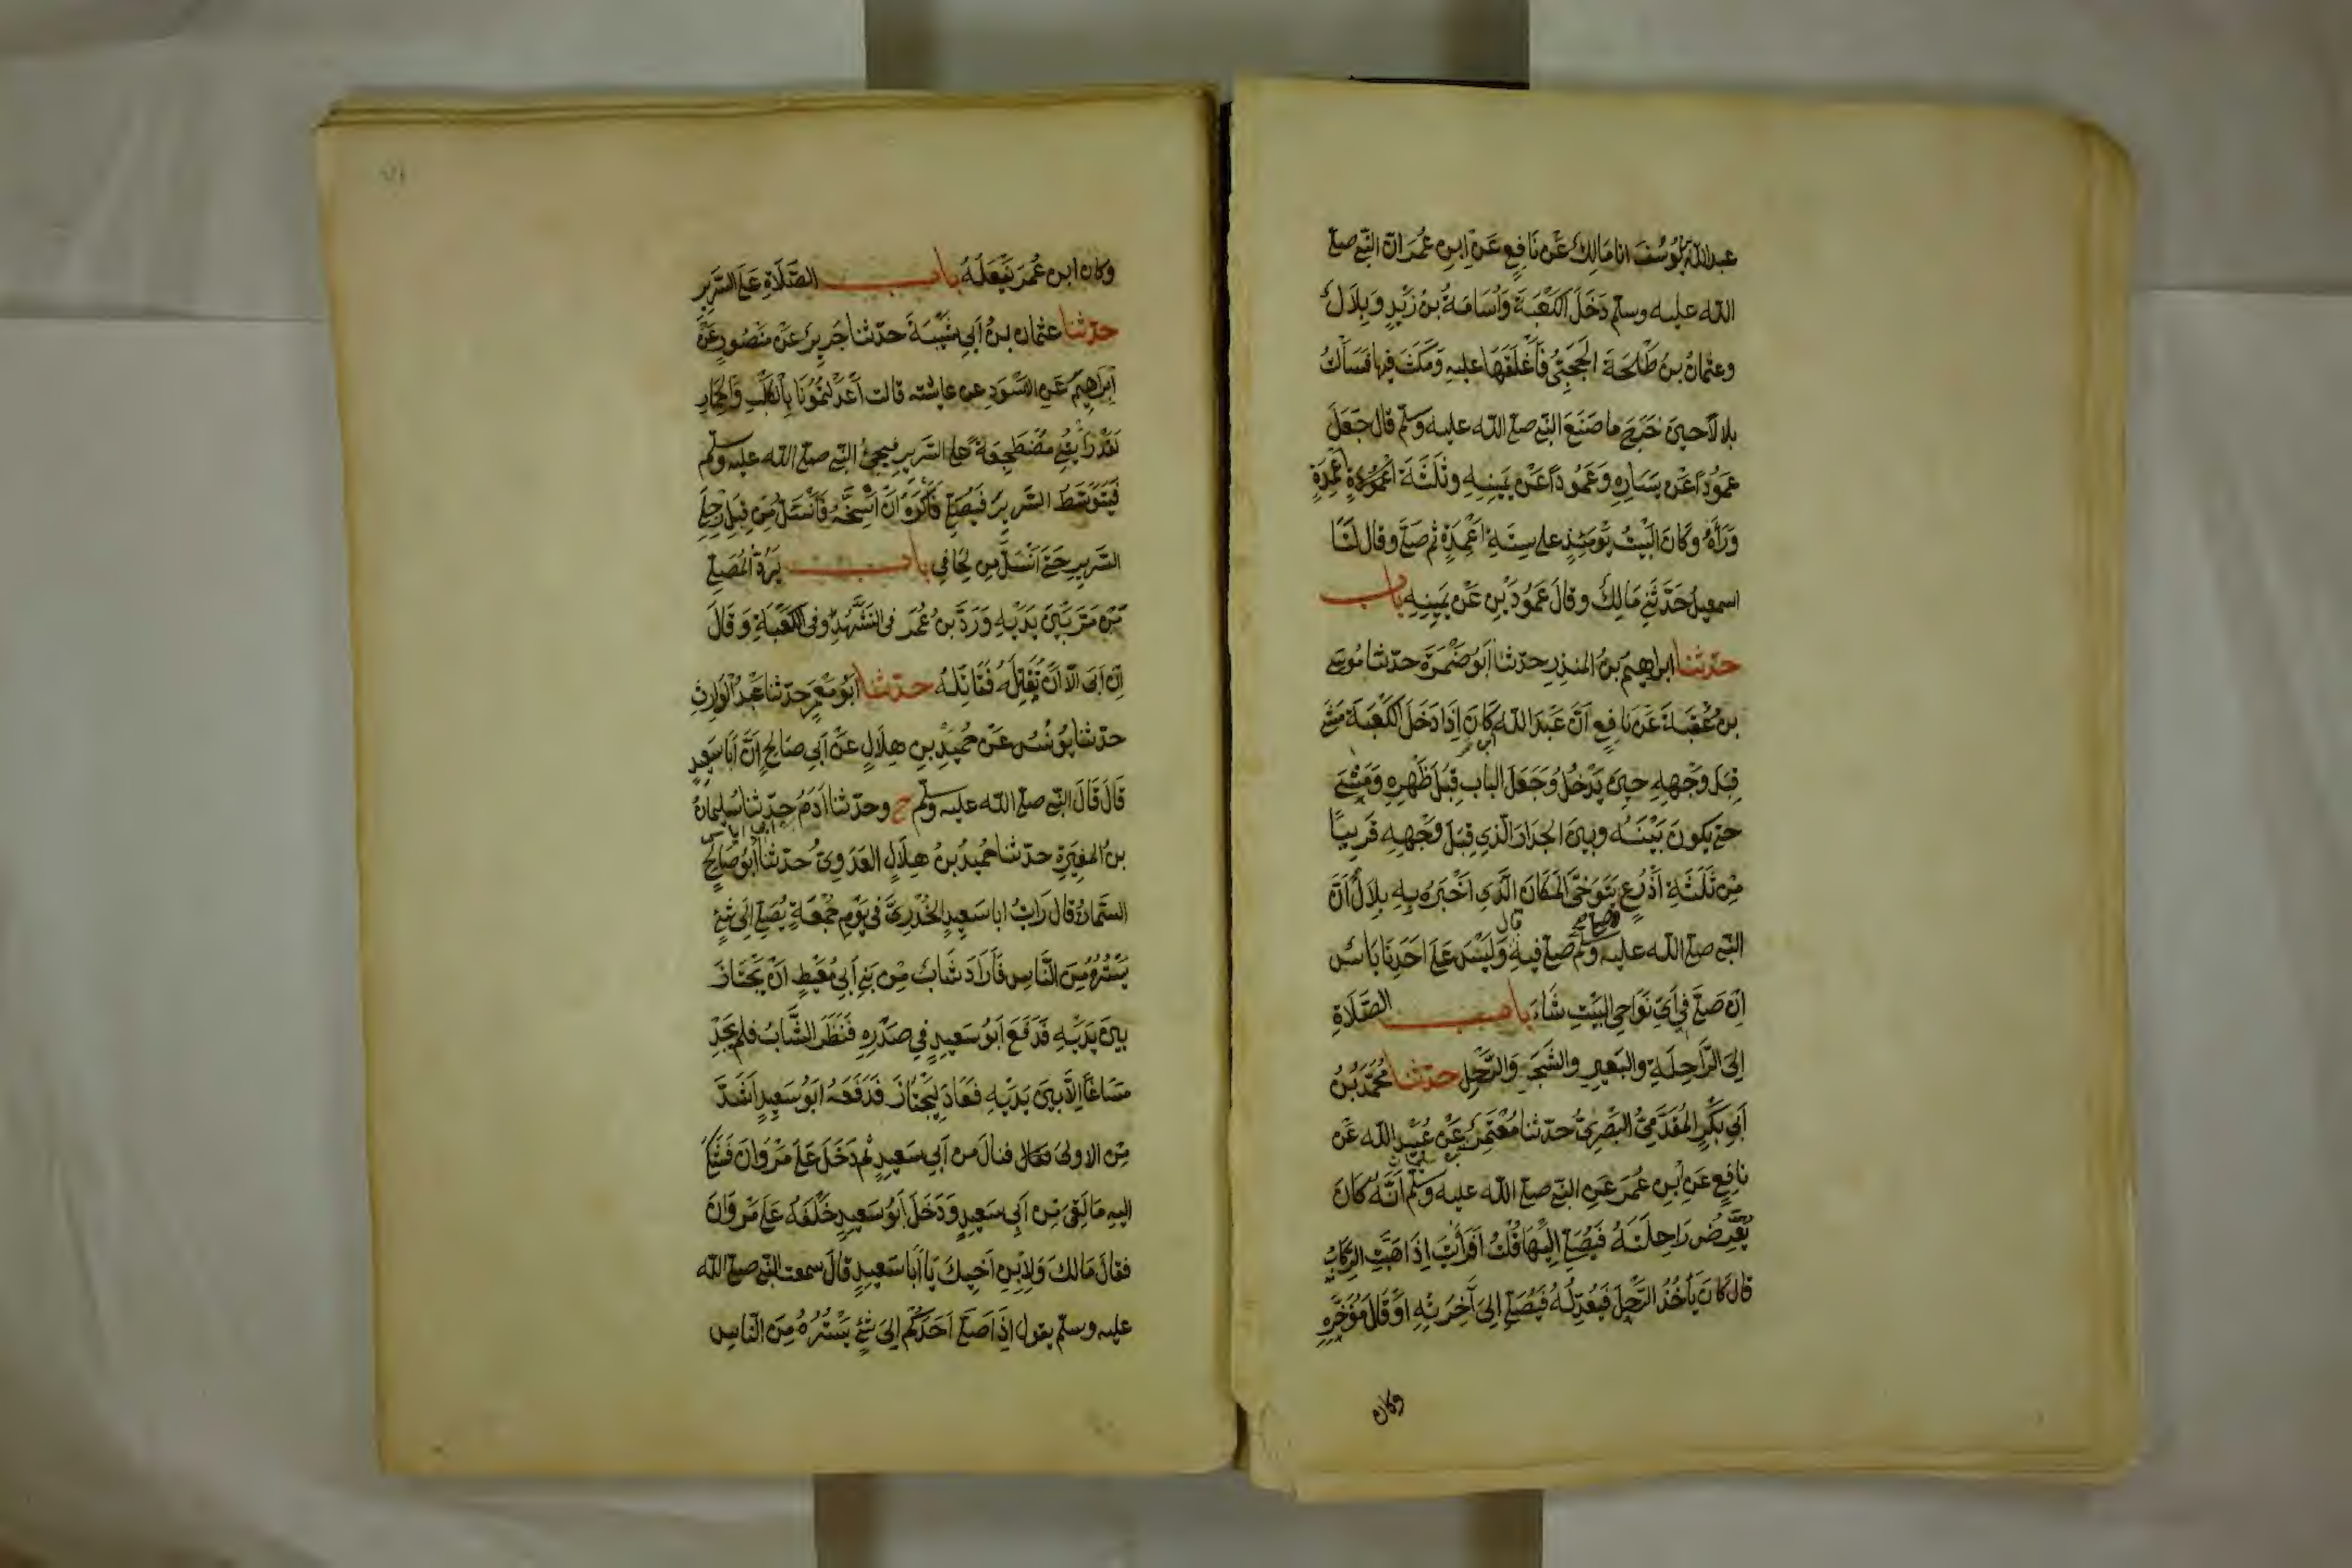 عبد الله بن يُوسُفَ انا مَالِكٌ عَنْ نَافِعٍ عَنْ ابنِ عُمَرَ انّ النّبى صلى
الله عليه وسلم دَخَلَ الكَعْبَةَ وَاُسَامَةُ بنُ زَيْدٍ وَبِلَالٌ
وعثمانُ بنُ طَلْحَةَ الحَجَبِىُّ فَاَغْلَقَهَا عليهِ وَمَكَثَ فيها فَسَاَلْتُ
بلالًا حينَ خَرَجَ ما صَنَعَ النّبى صلى الله عليه وسلم قال جَعَلَ
عَمُودًا عَنْ يَسَارِهِ وَعَمُودًا عَنْ يَمِينِهِ وثَلثَةَ اَعْمِدَةٍ
وَرَاَهُ وكَانَ البَيْتُ يَوْمَئِذٍ على سِتَّةِ اَعْمِدَةٍ ثم صَلَّى وقال لَنَا
اسمعيلُ حَدَّثَنِى مَالِكٌ وقالَ عَمُودَيْنِ عَنْ يَمِينِهِ باب
حدّثنا ابراهيمُ بنُ المنذِرِ حدّثنا اَبُو ضَمْرَةَ حدّثنا مُوسَى
بنُ عُقْبَةَ عَنْ نَافِعٍ اَنَّ عَبْدَ اللهِ كَانَ اِذَا دَخَلَ الكَعْبَةَ مَشَى
قِبَلَ وَجْهِهِ حِينَ يَدْخُلُ وَجَعَلَ البابَ قِبَلَ ظَهْرِهِ وَمَشَى
حتى يكونَ بَيْنَهُ وبينَ الجِدَارِ الَّذِى قِبَلَ وَجْهِهِ قَرِيبًا
مِنْ ثَلثَةِ اَذْرُعٍ يَتَوَخَّى المَكَانَ الَّذِى اَخْبَرَهُ بِهِ بِلالٌ اَنَّ
النّبى صلى الله عليه وسلم صلى فيهِ قال وَلَيْسَ عَلَى اَحَدِنَا بَاسٌ
اِنْ صَلَّى فى اَىِّ نَوَاحِى البَيْتِ شَاءَ باب الصَّلَاةِ
اِلَى الرَّاحِلَةِ والبَعِيرِ والشَّجَرِ وَالرَّحْلِ حدّثنا مُحَمَّدُ بنُ
اَبِى بَكْرٍ المُقَدَّمِىُّ البَصْرِىُّ حدّثنا مُعْتَمِرٌ عَنْ عُبَيْدِ الله عَنْ
نَافِعٍ عَنِ ابْنِ عُمَرَ عَنِ النّبى صلى الله عليه وسلم اَنَّهُ كانَ
يُعَرِّضُ رَاحِلَتَهُ فَيُصَلِّى اِلَيْهَا قُلْتُ اَفَرَاَيْتَ اِذَا هَبَّتِ الرِّكَابُ
قالَ كانَ يَأْخُذُ الرَّحْلَ فَيُعَدِّلُهُ فَيُصَلِّى اِلَى آخِرَتِهِ اَوْ قَالَ مُؤَخَّرِهِ
وكان
وكان ابن عُمَرَ يَفْعَلُهُ باب الصَّلَاةِ عَلَى السَّرِيرِ
حدّثنا عثمان بنُ اَبِى شَيْبَةَ حدّثنا جَرِيرٌ عَنْ مَنْصُورٍ عَنْ
اِبْرَاهِيمَ عَنِ الاَسْوَدِ عن عايشة قالت اَعَدَلْتُمُونَا بِالْكَلْبِ وَالحِمَارِ
لَقَدْ رَاَيْتُنِى مُضْطَجِعَةً على السَّرِيرِ فيَجِىُ النّبى صلى الله عليه وسلم
فَيَتَوَسَّطُ السَّرِيرَ فَيُصَلِّى فَاَكْرَهُ اَنْ اُسَنِّحَهُ فَاَنْسَلُّ مِنْ قِبَلِ رِجْلَىِ
السَّرِيرِ حَتَّى اَنْسَلَّ مِنْ لِحَافِى باب يَرُدُّ المُصَلِّى
مَنْ مَرَّ بَيْنَ يَدَيْهِ وَرَدَّ بنُ عُمَرَ فى التَّشَهُّدِ وفى الكَعْبَةِ وَقَالَ
اِنْ اَبَى اِلّا اَنْ تُقَاتِلَهُ فَقَاتِلْهُ حدّثنا اَبُو مَعْمَرٍ حدّثنا عَبْدُ الْوَارِثِ
حدّثنا يُونُسُ عَنْ حُمَيْدِ بنِ هِلَالٍ عَنْ اَبِى صَالِحٍ اَنَّ اَبَا سَعِيدٍ
قَالَ قَالَ النّبى صلى الله عليه وسلم ح وحدّثنا اَدَمُ بن ابى اياس حدّثنا سُلَيمانُ
بنُ المُغِيرَةِ حدّثنا حُمَيْدُ بنُ هِلَالٍ العَدَوِىُّ حدّثنا اَبُو صَالِحٍ
السَّمَّانُ قالَ رَاَيْتُ ابا سَعِيدٍ الخُدْرِىَّ فى يَوْمِ جُمُعَةٍ يُصَلِّى اِلَى شَىْءٍ
يَسْتُرُهُ مِنَ النَّاسِ فَاَرَادَ شَابٌّ مِنْ بَنِى اَبِى مُعَيْطٍ اَنْ يَجْتَازَ
بينَ يَدَيْهِ فَدَفَعَ اَبُو سَعِيدٍ فِى صَدْرِهِ فَنَظَرَ الشَّابُّ فلم يَجِدْ
مَسَاغًا اِلَّا بينَ يَدَيْهِ فَعَادَ لِيَجْتَازَ فَدَفَعَهُ اَبُو سَعِيدٍ اَشَدَّ
مِنَ الاولى فنالَ من اَبِى سَعِيدٍ ثم دَخَلَ عَلَى مَرْوَانَ فَشَكَا
اليهِ مَا لَقِىَ مِنْ اَبِى سَعِيدٍ وَدَخَلَ اَبُو سَعِيدٍ خَلْفَهُ عَلَى مَرْوَانَ
فقالَ مَالَكَ وَلِابْنِ اَخِيكَ يَا اَبَا سَعِيدٍ قالَ سمعت النّبى صلى الله
عليه وسلم يقول اِذَا صَلَّى اَحَدُكُمْ اِلَى شَىْءٍ يَسْتُرُهُ مِنَ النّاسِ